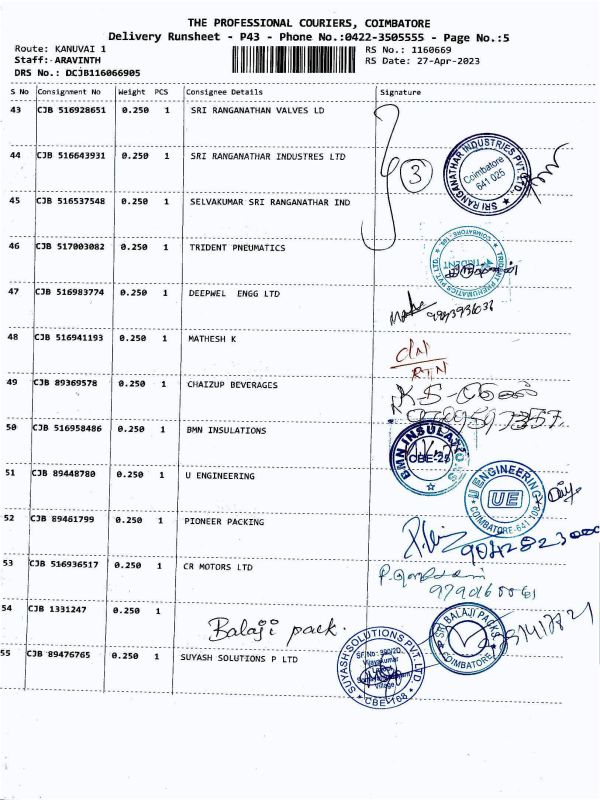 THE PROFESSIONAL COURIERS, COIMBATORE
Delivery Runsheet - P43 - Phone No.:0422-3505555 - Page No.:5
Route: KANUVAI 1
RS No.: 1160669
Staff: ARAVINTH
RS Date: 27-Apr-2023
DRS No.: DCJB116066905
S No Consignment No Weight PCS Consignee Details Signature
43 CJB 516928651 0.250 1 SRI RANGANATHAN VALVES LD
44 CJB 516643931 0.250 1 SRI RANGANATHAR INDUSTRES LTD
3
SRI RANGANATHAR INDUSTRIES PVT. LTD.
Coimbatore
641 025
45 CJB 516537548 0.250 1 SELVAKUMAR SRI RANGANATHAR IND
46 CJB 517003082 0.250 1 TRIDENT PNEUMATICS
TRIDENT PNEUMATICS PVT. LTD.
TRIDENT
47 CJB 516983774 0.250 1 DEEPWEL ENGG LTD
48 CJB 516941193 0.250 1 MATHESH K
RTN
49 CJB 89369578 0.250 1 CHAIZUP BEVERAGES
50 CJB 516958486 0.250 1 BMN INSULATIONS
BMN INSULATIONS
CBE-25
51 CJB 89448780 0.250 1 U ENGINEERING
U ENGINEERING
UE
COIMBATORE-641 108
52 CJB 89461799 0.250 1 PIONEER PACKING
53 CJB 516936517 0.250 1 CR MOTORS LTD
54 CJB 1331247 0.250 1
Balaji pack.
SRI BALAJI PACKS
COIMBATORE
55 CJB 89476765 0.250 1 SUYASH SOLUTIONS P LTD
SUYASH SOLUTIONS PVT. LTD.
Village
CBE-108